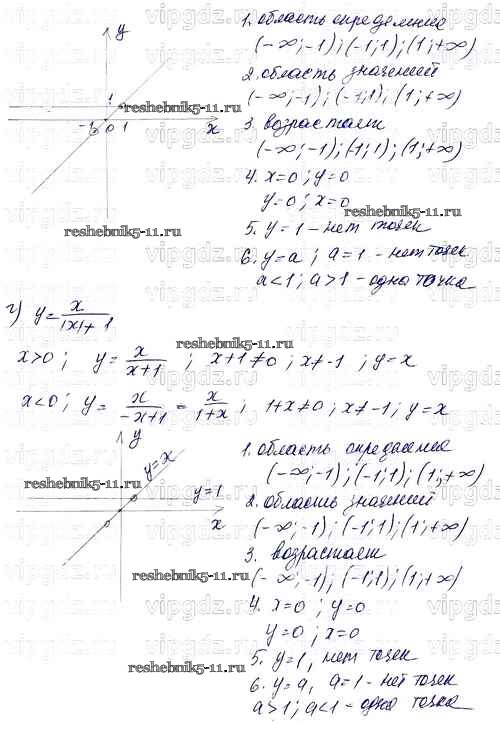 1. область определения
(-∞;-1); (-1;1); (1;+∞)
2. область значений
(-∞;-1); (-1;1); (1;+∞)
3. возрастает
(-∞;-1); (1;1); (1;+∞)
4. x=0; y=0
y=0; x=0
5. y=1 - нет точек
6. y=a; a=1 - нет точек
a<1; a>1 - одна точка
y
1
-1 0 1
x
г) y = x/|x|+1
x>0; y = x/x+1; x+1≠0; x≠-1; y=x
x<0; y = x/-x+1 = x/1+x; 1+x≠0; x≠-1; y=x
y
y=x
y=1
x
1. область определения
(-∞;-1); (-1;1); (1;+∞)
2. область значений
(-∞;-1); (-1;1); (1;+∞)
3. возрастает
(-∞;-1); (-1;1); (1;+∞)
4. x=0; y=0
y=0; x=0
5. y=1, нет точек
6. y=a, a=1 - нет точек
a>1; a<1 - одна точка
reshebnik5-11.ru
reshebnik5-11.ru
reshebnik5-11.ru
reshebnik5-11.ru
reshebnik5-11.ru
reshebnik5-11.ru
reshebnik5-11.ru
reshebnik5-11.ru
vipgdz.ru